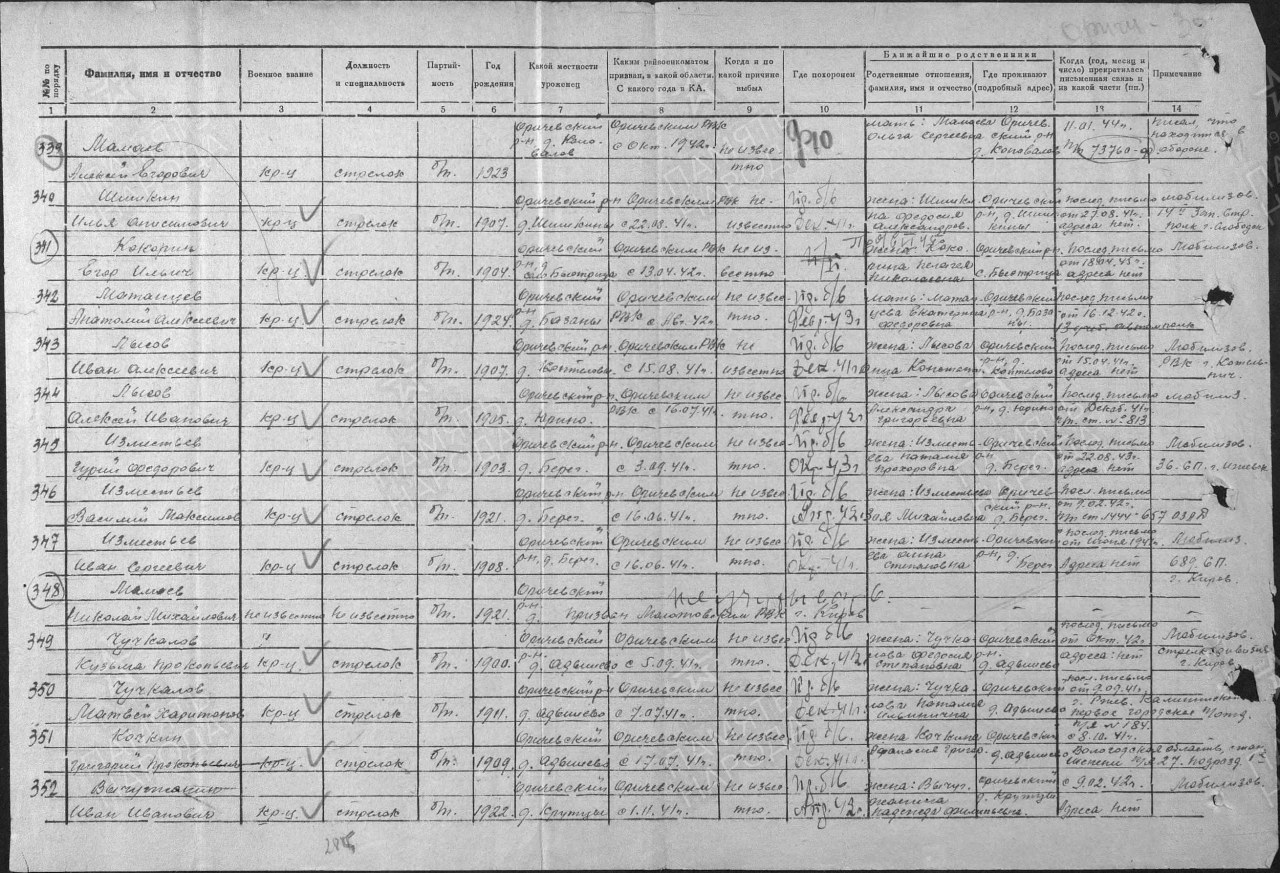 Оричи - 30
№№ по порядку
Фамилия, имя и отчество
Военное звание
Должность и специальность
Партийность
Год рождения
Какой местности уроженец
Каким райвоенкоматом призван, в какой области. С какого года в КА.
Когда и по какой причине выбыл
Где похоронен
Ближайшие родственники
Родственные отношения, фамилия, имя и отчество
Где проживают (подробный адрес)
Когда (год, месяц и число) прекратилась письменная связь и из какой части (пп.)
Примечание
1 2 3 4 5 6 7 8 9 10 11 12 13 14
339 Мамаев Оричевский Оричевским РВК мать: Мамаева Оричев- 11.01.44г. Писал, что
р-н, д. Коновалов с Окт. 1942г. не известно Ольга Сергеевна ский р-н д. Коновалов пп 73760 находится в обороне.
Алексей Егорович кр-ц стрелок б/п. 1923
340 Шишкин Оричевский р-н Оричевским РВК не пр. б/в жена: Шишки- Оричевский послед. письмо мобилизов.
Илья кр-ц стрелок б/п. 1907. д. Шишкины с 22.08.41г. известно Дек-41г. на Федосия Александров. р-н, д. Шишкины от 27.08.41г. адреса нет. 14й Зап. Стр. полк г. Слободск
341 Кокорин Оричевский Оричевским РВК не из- жена: Коко- Оричевский р-н Послед. письмо Мобилизов.
Егор Ильич кр-ц стрелок б/п. 1904. р-н, с. Быстрица с 13.04.42г. вестно рина Пелагея Николаевна с. Быстрица адреса нет
342 Матанцев Оричевский Оричевским не извес- пр. б/в мать: Матан- Оричевский послед. письмо
Анатолий Алексеевич кр-ц стрелок б/п. 1924. р-н д. Базаны РВК с Ав. 42г. тно. Февр-43г цева Екатерина Федоровна р-н, д. Базаны от 16.12.42г. 13 учеб. автом. полк
343 Лысов Оричевский р-н. Оричевским РВК не пр. б/в жена: Лысова Оричевский Послед. письмо Мобилизов.
Иван Алексеевич кр-ц стрелок б/п. 1907. с 15.08.41г. известно Дек-41г р-н, д. от 15.04.41г. адреса нет РВК г. Котельнич.
344 Лысов Оричевский р-н. Оричевским не извес- пр. б/в жена: Лысова Оричевский Послед. письмо мобилиз.
Алексей Иванович кр-ц стрелок б/п. 1905. д. Юрино. РВК с 16.07.41г. тно. Февр-42г Александра Григорьевна р-н, д. Юрино от Декаб. 41г п/п. ст. № 813
345 Изместьев Оричевский р-н Оричевским не извес- пр. б/в жена: Изместь- Оричевский Послед. письмо Мобилизов.
Гурий Федорович кр-ц стрелок б/п. 1903. д. Берег. с 3.09.41г. тно. Окт-43г ева Наталия Прохоровна р-н д. Берег. от 22.08.43г. адреса нет 36. бП. г. Ижевск
346 Изместьев Оричевский р-н Оричевским не извес- пр. б/в жена: Изместьева Оричев- Посл. письмо
Василий Максимов кр-ц стрелок б/п. 1921. д. Берег. с 16.06.41г. тно. Апр-42г Зоя Михайловна ский р-н д. Берег. 9.02.42г. п/п ст 1444-657
347 Изместьев Оричевский Оричевским не извес- пр. б/в жена: Изместь- Оричевский Послед. письмо Мобилиз.
Иван Сергеевич кр-ц стрелок б/п. 1908. р-н, д. Берег. с 16.06.41г. тно. Окт-41г. ева Анна Степановна р-н, д. Берег от июня 194 Адреса нет 689. бП. г. Киров.
348 Мамаев Оричевский
не учтен
Николай Михайлович неизвестно Не известно б/п. 1921. р-н. д. призван Молотовским РВК г. Киров
349 Чучкалов Оричевский Оричевским не извес- пр. б/в жена: Чучка- Оричевский послед. письмо Мобилизов.
Кузьма Прокопьевич кр-ц стрелок б/п. 1900. р-н. д. Адвишево с 5.09.41г. тно. Дек-42г лова Федосия Степановна р-н. д. Адвишево от Окт. 42г адреса: нет стрелк. дивизия г. Киров.
350 Чучкалов Оричевский р-н Оричевским Не извес- пр. б/в жена: Чучка- Оричевский посл. письмо от 9.09.41г.
Матвей Харитонов. кр-ц стрелок б/п. 1911. д. Адвишево с 7.07.41г. тно. Дек-41г. лова Наталия Ильинична д. Адвишево г. Ржев. Калининской первое городское п/отд. п/я № 184.
351 Кочкин Оричевский Оричевским не извес- пр. б/в. жена Кочкина Оричевский с 8.10.41г.
Григорий Прокопьевич кр-ц стрелок б/п. 1909. д. Адвишево с 17.07.41г. тно. Дек-41г. Афанасия Григор. д. Адвишево Вологодская область, п/я 27.
352 Вычугжанин Оричевский Оричевским не извес- пр. б/в жена: Вычуг- Оричевский с 9.02.42г. Мобилизов.
Иван Иванович кр-ц. стрелок б/п. 1922. д. Крутцы с 1.11.41г. тно. Апр. 42г. жанина Надежда Филипьевна. д. Крутцы Адреса нет